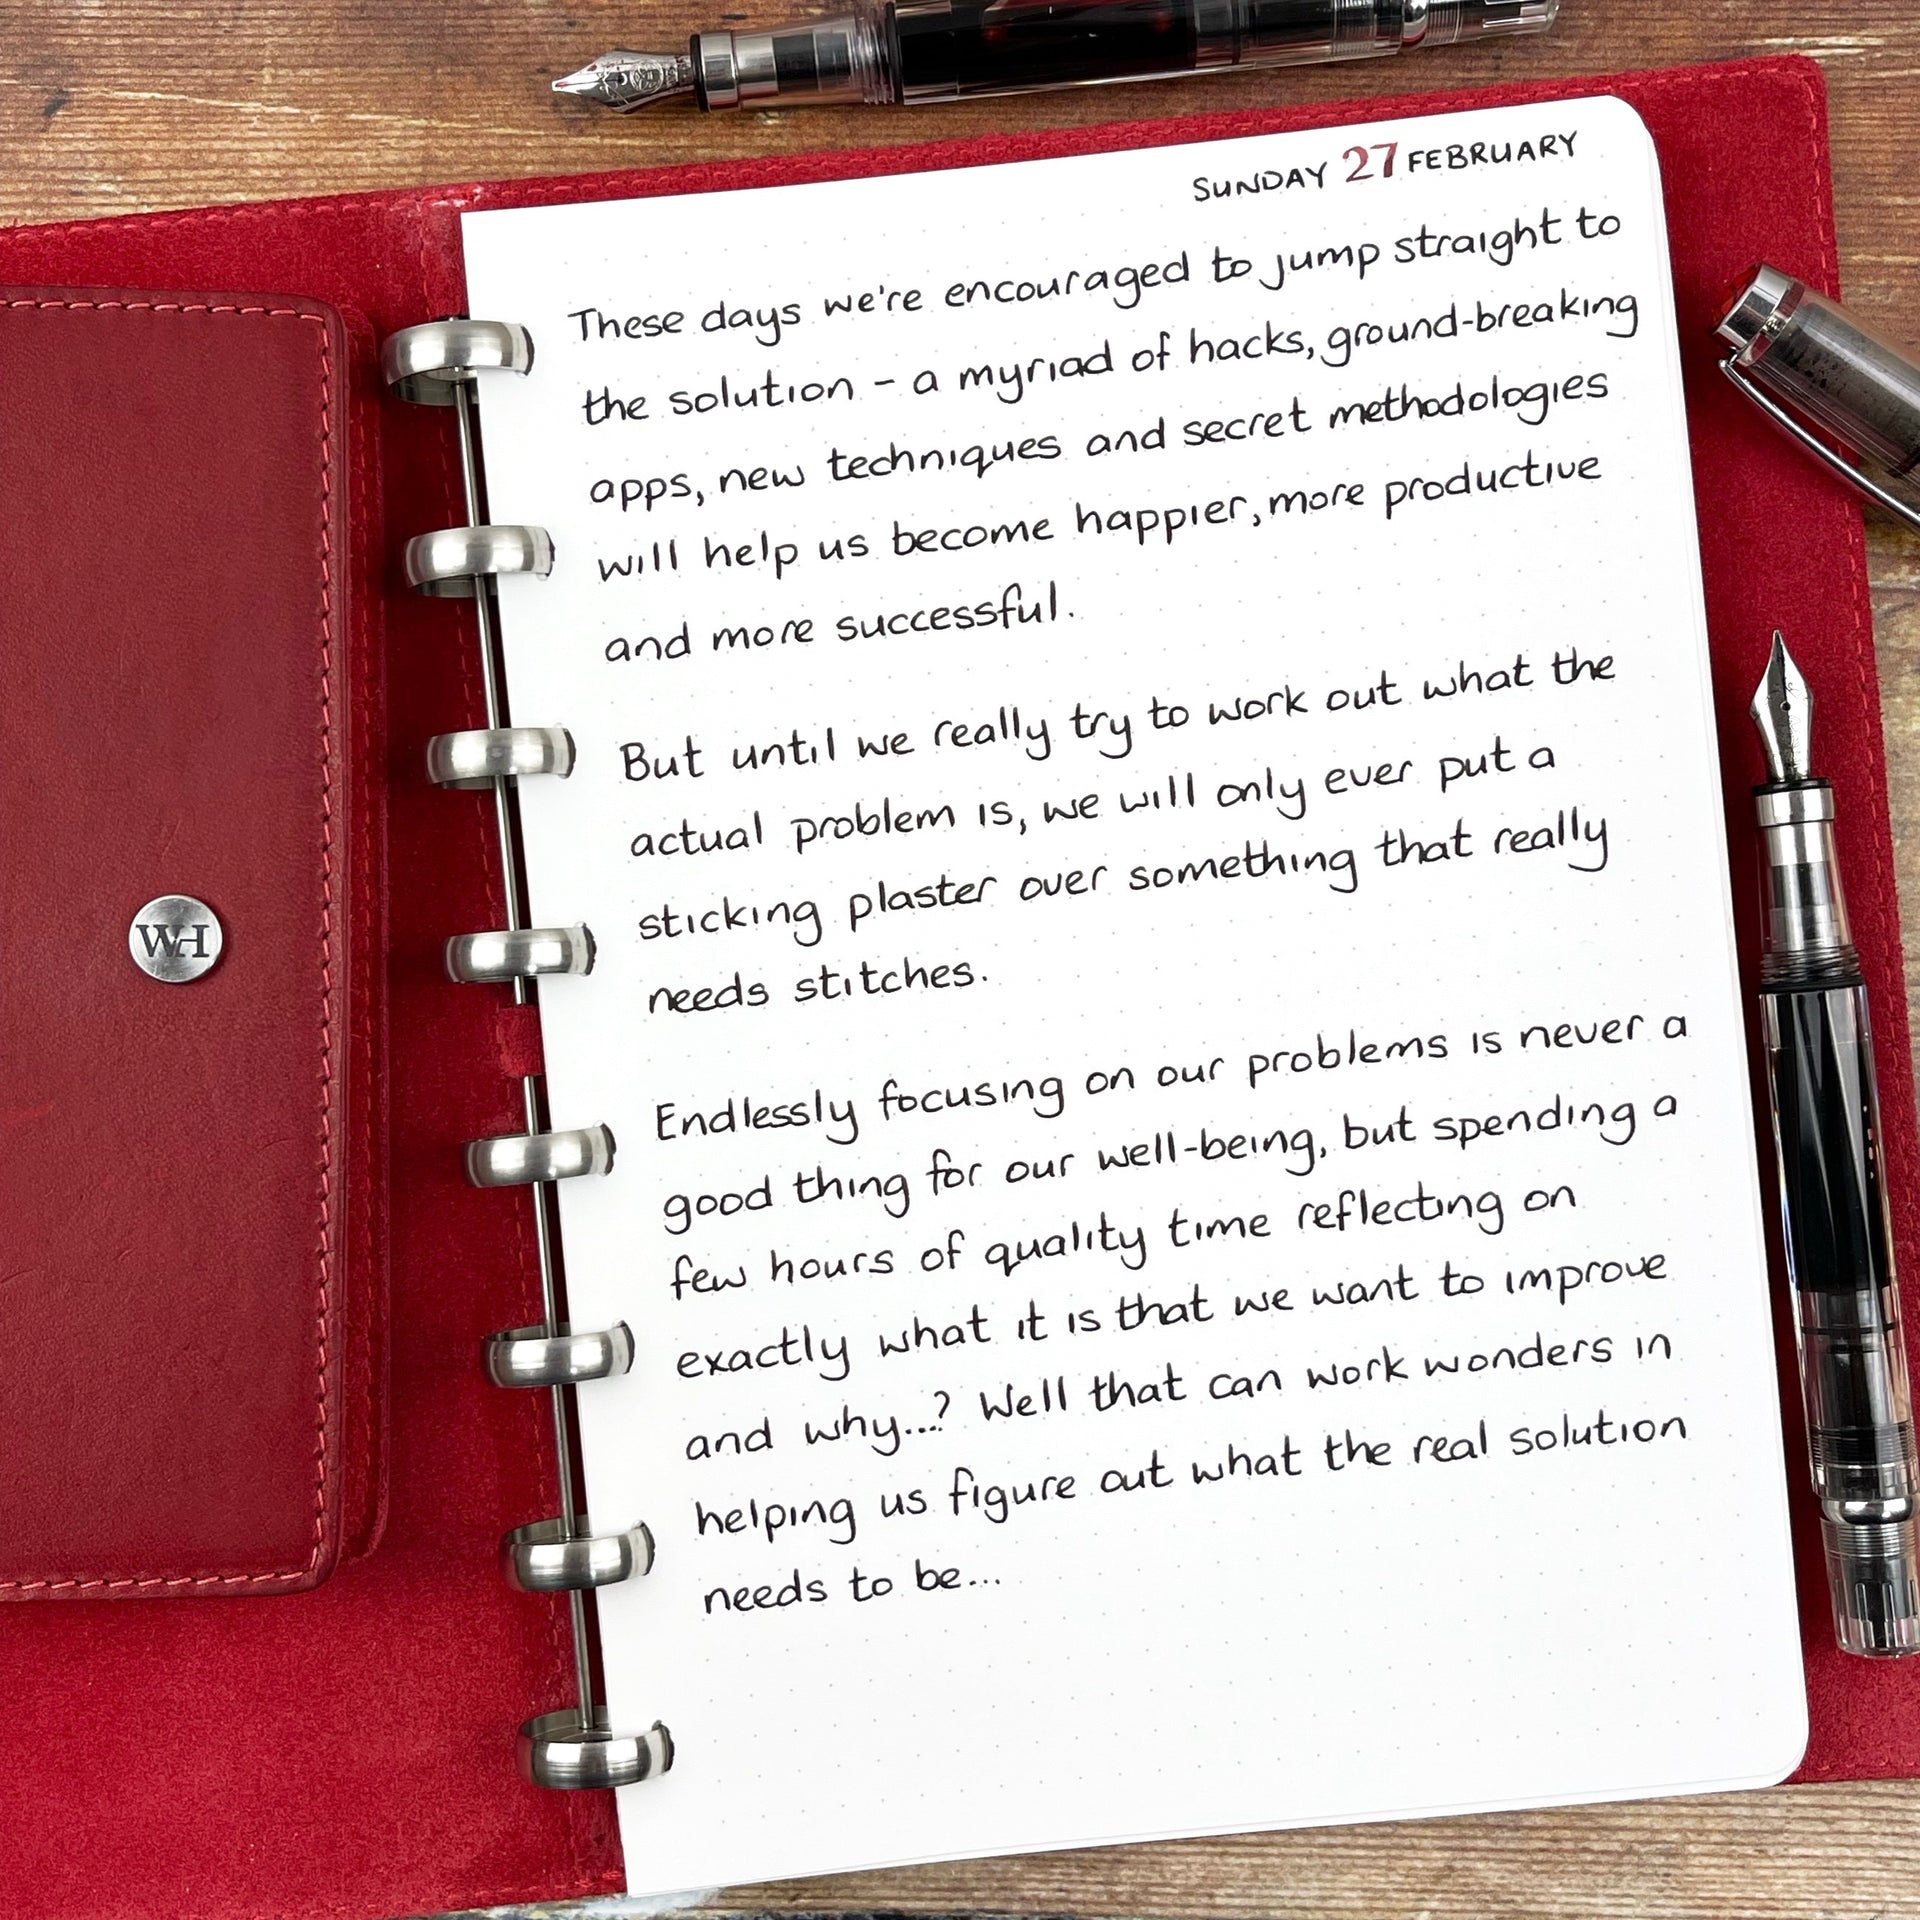 SUNDAY 27 FEBRUARY
These days we're encouraged to jump straight to
the solution - a myriad of hacks, ground-breaking
apps, new techniques and secret methodologies
will help us become happier, more productive
and more successful.
But until we really try to work out what the
actual problem is, we will only ever put a
sticking plaster over something that really
needs stitches.
Endlessly focusing on our problems is never a
good thing for our well-being, but spending a
few hours of quality time reflecting on
exactly what it is that we want to improve
and why...? Well that can work wonders in
helping us figure out what the real solution
needs to be...
WH